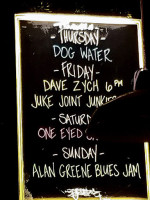 - THURSDAY -
DOG WATER
- FRIDAY -
DAVE ZYCH 6 PM
JUKE JOINT
-
ONE EYED
- SUNDAY -
ALAN GREENE BLUES JAM